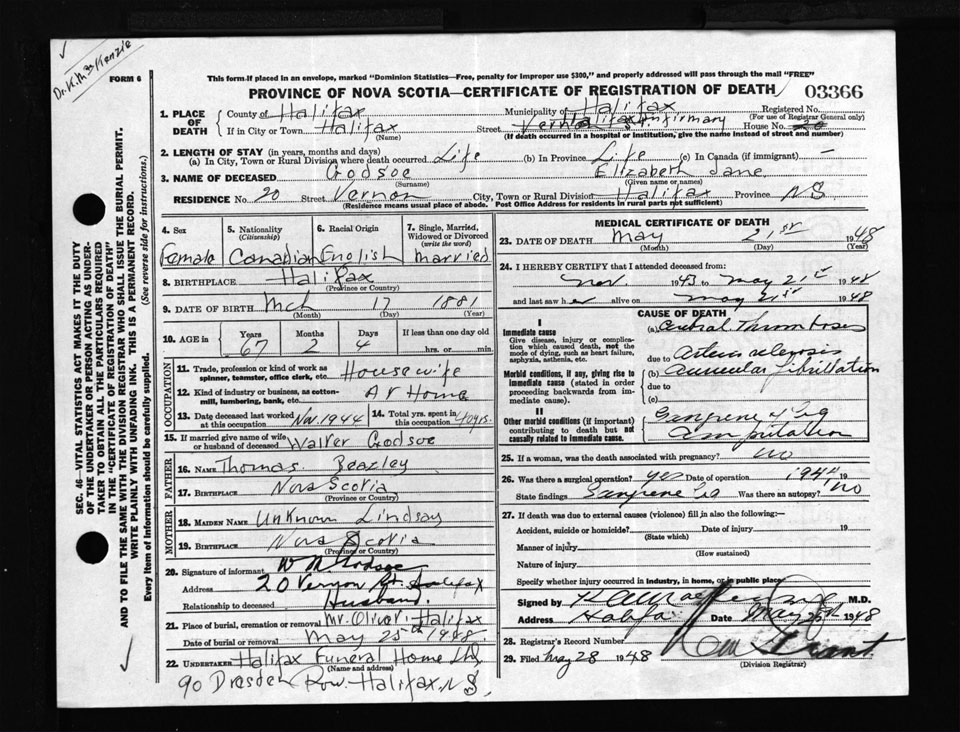 ✓
Dr. K. M. McKenzie
FORM 6
This form if placed in an envelope, marked "Dominion Statistics—Free, penalty for improper use $300," and properly addressed will pass through the mail "FREE"
PROVINCE OF NOVA SCOTIA—CERTIFICATE OF REGISTRATION OF DEATH 03366
SEC. 46—VITAL STATISTICS ACT MAKES IT THE DUTY
OF THE UNDERTAKER OR PERSON ACTING AS UNDER-
TAKER TO OBTAIN ALL THE PARTICULARS REQUIRED
IN THE "CERTIFICATE OF REGISTRATION OF DEATH"
AND TO FILE THE SAME WITH THE DIVISION REGISTRAR WHO SHALL ISSUE THE BURIAL PERMIT.
WRITE PLAINLY WITH UNFADING INK. THIS IS A PERMANENT RECORD.
Every item of Information should be carefully supplied. (See reverse side for instructions.)
✓
1. PLACE OF DEATH
County of Halifax
Municipality of Halifax
Registered No.
(For use of Registrar General only)
If in City or Town Halifax
(Name)
Street Halifax Infirmary House No. 20
(If death occurred in a hospital or institution, give the name instead of street and number)
2. LENGTH OF STAY (in years, months and days)
(a) In City, Town or Rural Division where death occurred Life (b) In Province Life (c) In Canada (if immigrant) —
3. NAME OF DECEASED Godsoe Elizabeth Jane
(Surname) (Given name or names)
RESIDENCE No. 20 Street Vernon City, Town or Rural Division Halifax Province NS
(Residence means usual place of abode. Post Office Address for residents in rural parts not sufficient)
4. Sex
Female
5. Nationality
(Citizenship)
Canadian
6. Racial Origin
English
7. Single, Married, Widowed or Divorced
(write the word)
Married
8. BIRTHPLACE Halifax
(Province or Country)
9. DATE OF BIRTH Mch 17 1881
(Month) (Day) (Year)
10. AGE in
Years 67
Months 2
Days 4
If less than one day old
hrs. or min.
OCCUPATION
11. Trade, profession or kind of work as
spinner, teamster, office clerk, etc. Housewife
12. Kind of industry or business, as cotton-
mill, lumbering, bank, etc. At Home
13. Date deceased last worked
at this occupation Nov. 1944
14. Total yrs. spent in
this occupation 40 yrs.
15. If married give name of wife
or husband of deceased Walter Godsoe
FATHER
16. NAME Thomas Beazley
17. BIRTHPLACE Nova Scotia
(Province or Country)
MOTHER
18. MAIDEN NAME Unknown Lindsay
19. BIRTHPLACE Nova Scotia
(Province or Country)
20. Signature of informant W M Godsoe
Address 20 Vernon St. Halifax
Relationship to deceased Husband.
21. Place of burial, cremation or removal Mt. Olivet-Halifax
Date of burial or removal May 25th 1948
22. UNDERTAKER Halifax Funeral Home Ltd,
(Name and address)
90 Dresden Row. Halifax, N.S.
MEDICAL CERTIFICATE OF DEATH
23. DATE OF DEATH May 21st 1948
(Month) (Day) (Year)
24. I HEREBY CERTIFY that I attended deceased from:
Nov. 1943 to May 21st 1948
and last saw her alive on May 21st 1948
CAUSE OF DEATH
I
Immediate cause
Give disease, injury or complica-
tion which caused death, not the
mode of dying, such as heart failure,
asphyxia, asthenia, etc.
Morbid conditions, if any, giving rise to
immediate cause (stated in order
proceeding backwards from im-
mediate cause).
II
Other morbid conditions (if important)
contributing to death but not
causally related to immediate cause.
(a) Cerebral Thrombosis
due to
(b) Auricular fibrillation
due to
(c)
Gangrene of leg
Amputation
25. If a woman, was the death associated with pregnancy? no
26. Was there a surgical operation? yes Date of operation 1944 19
State findings Gangrene leg Was there an autopsy? no
27. If death was due to external causes (violence) fill in also the following:—
Accident, suicide or homicide? Date of injury 19
(State which)
Manner of injury
(How sustained)
Nature of injury
Specify whether injury occurred in industry, in home, or in public place
Signed by M.D.
Address Halifax Date May 1948
28. Registrar's Record Number
29. Filed May 28 1948
(Division Registrar)